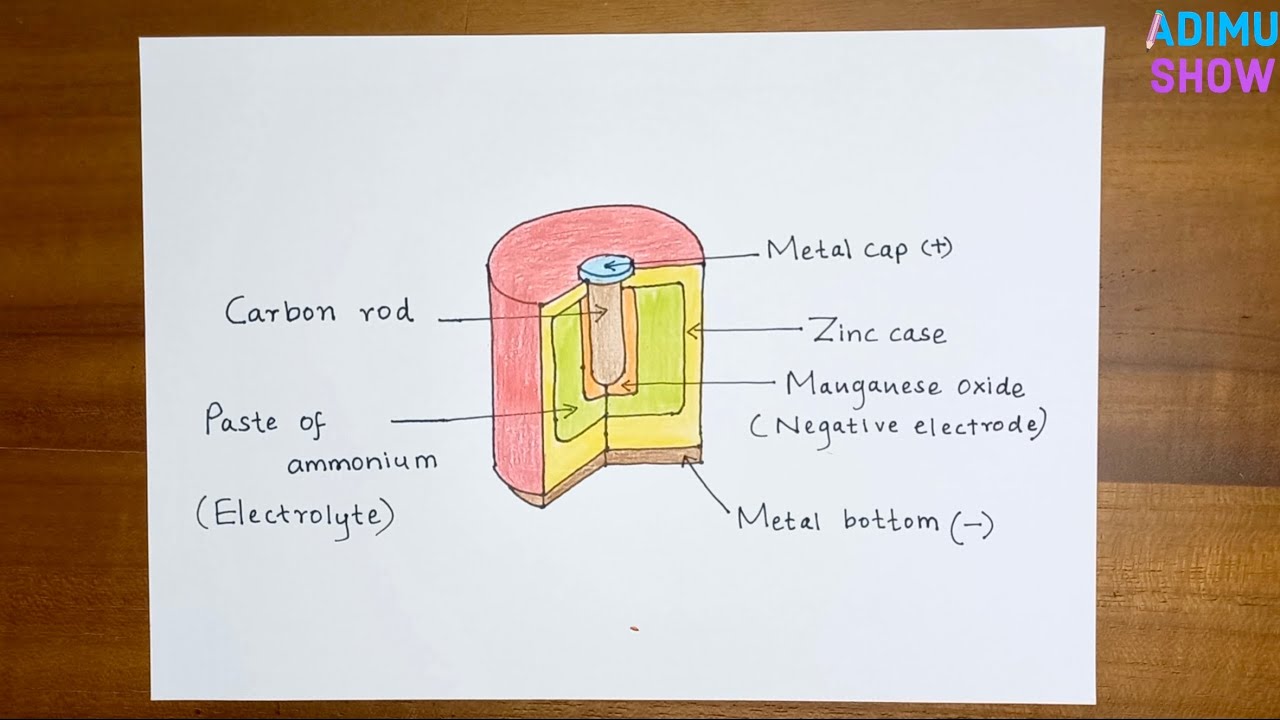 ADIMU
SHOW
Metal cap (+)
Carbon rod
Zinc case
Manganese oxide
(Negative electrode)
Paste of
ammonium
(Electrolyte)
Metal bottom (-)